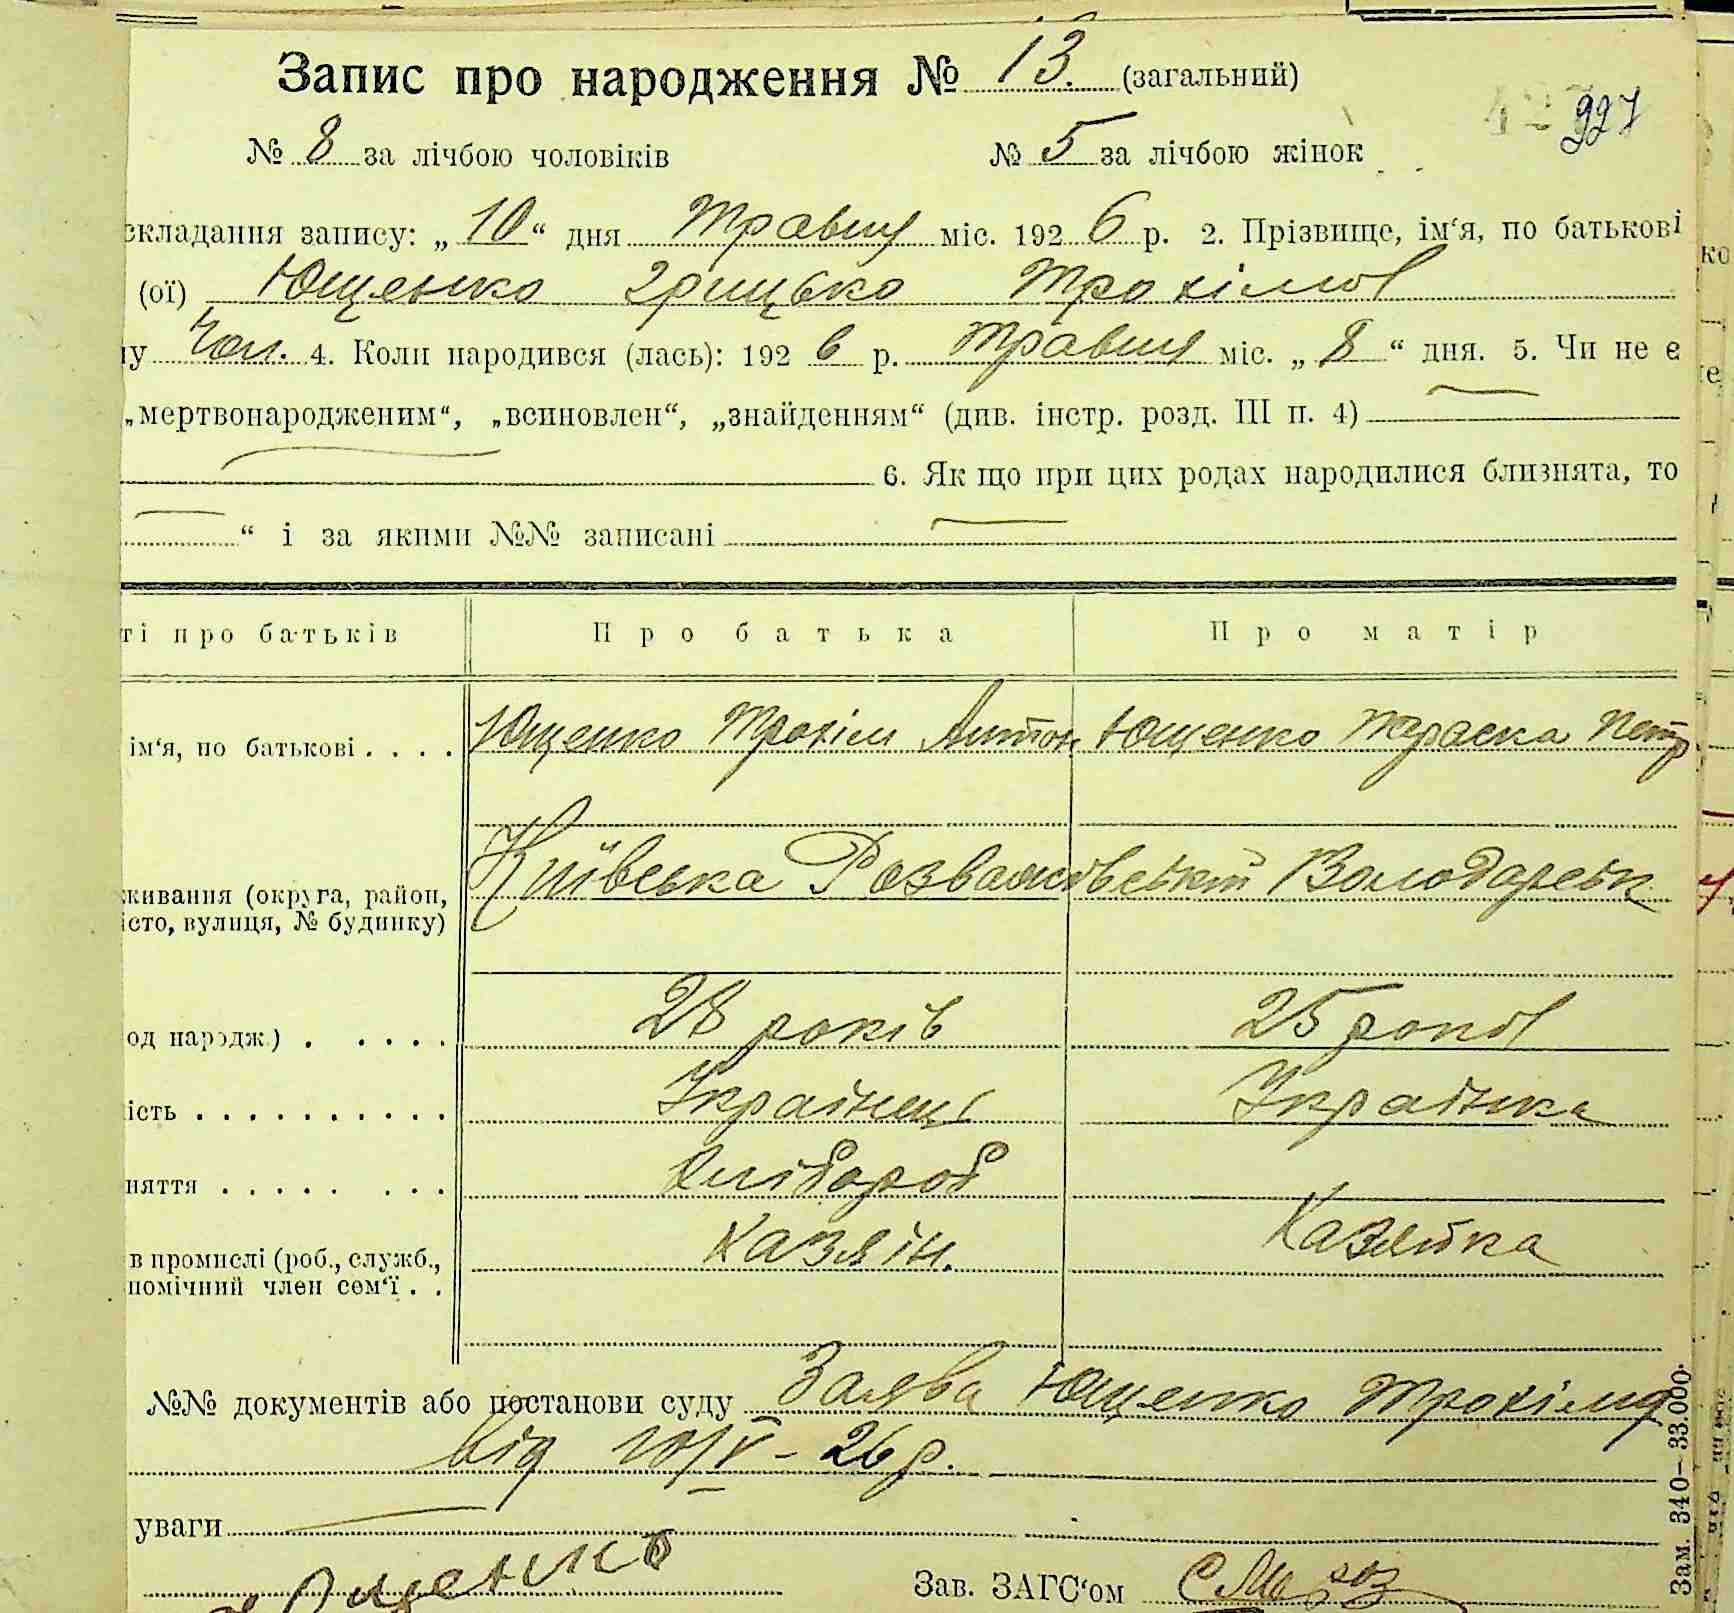 Запис про народження № 13. (загальний)
927
№ 8 за лічбою чоловіків № 5 за лічбою жінок
складання запису: „10“ дня Травня міс. 1926 р. 2. Прізвище, ім‘я, по батькові
(ої) Ющенко Грицько Трохімов
Чол. 4. Коли народився (лась): 1926 р. Травня міс. „8“ дня. 5. Чи не є
„мертвонародженим“, „всиновлен“, „знайденням“ (див. інстр. розд. III п. 4)
6. Як що при цих родах народилися близнята, то
“ і за якими №№ записані
ті про батьків Про батька Про матір
ім‘я, по батькові . . . . Ющенко Трохім Антон Ющенко Параска Петр
живання (округа, район, Київська Розважівський Володарськ
істо, вулиця, № будинку)
од народж.) . . . . . 28 років 25 років
ість . . . . . . . . . . Українец Українка
няття . . . . . . . . Хлібороб
в промислі (роб., служб., Хазяїн. Хазяйка
помічний член сем‘ї . .
№№ документів або постанови суду Заява Ющенко Трохіма
від 10/V - 26 р.
уваги
Ющенко Зав. ЗАГС‘ом
Зам. 340–33.000.